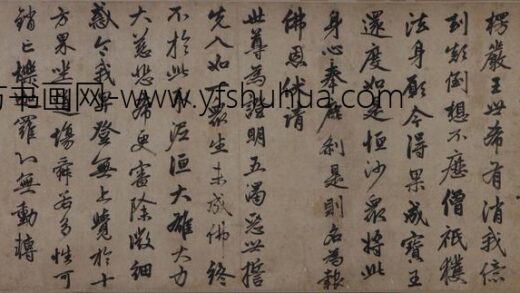 楞嚴王世希有消我億
劫顛倒想不歷僧祇獲
法身願今得果成寶王
還度如是恒沙眾將此
身心奉塵剎是則名為報
佛恩伏請
世尊為證明五濁惡世誓
先入如一眾生未成佛終
不於此取泥洹大雄大力
大慈悲希更審除微細
惑令我早登無上覺於十
方界坐道場舜若多性可
銷亡爍迦羅心無動轉
书画网-www.yfshuhua.com